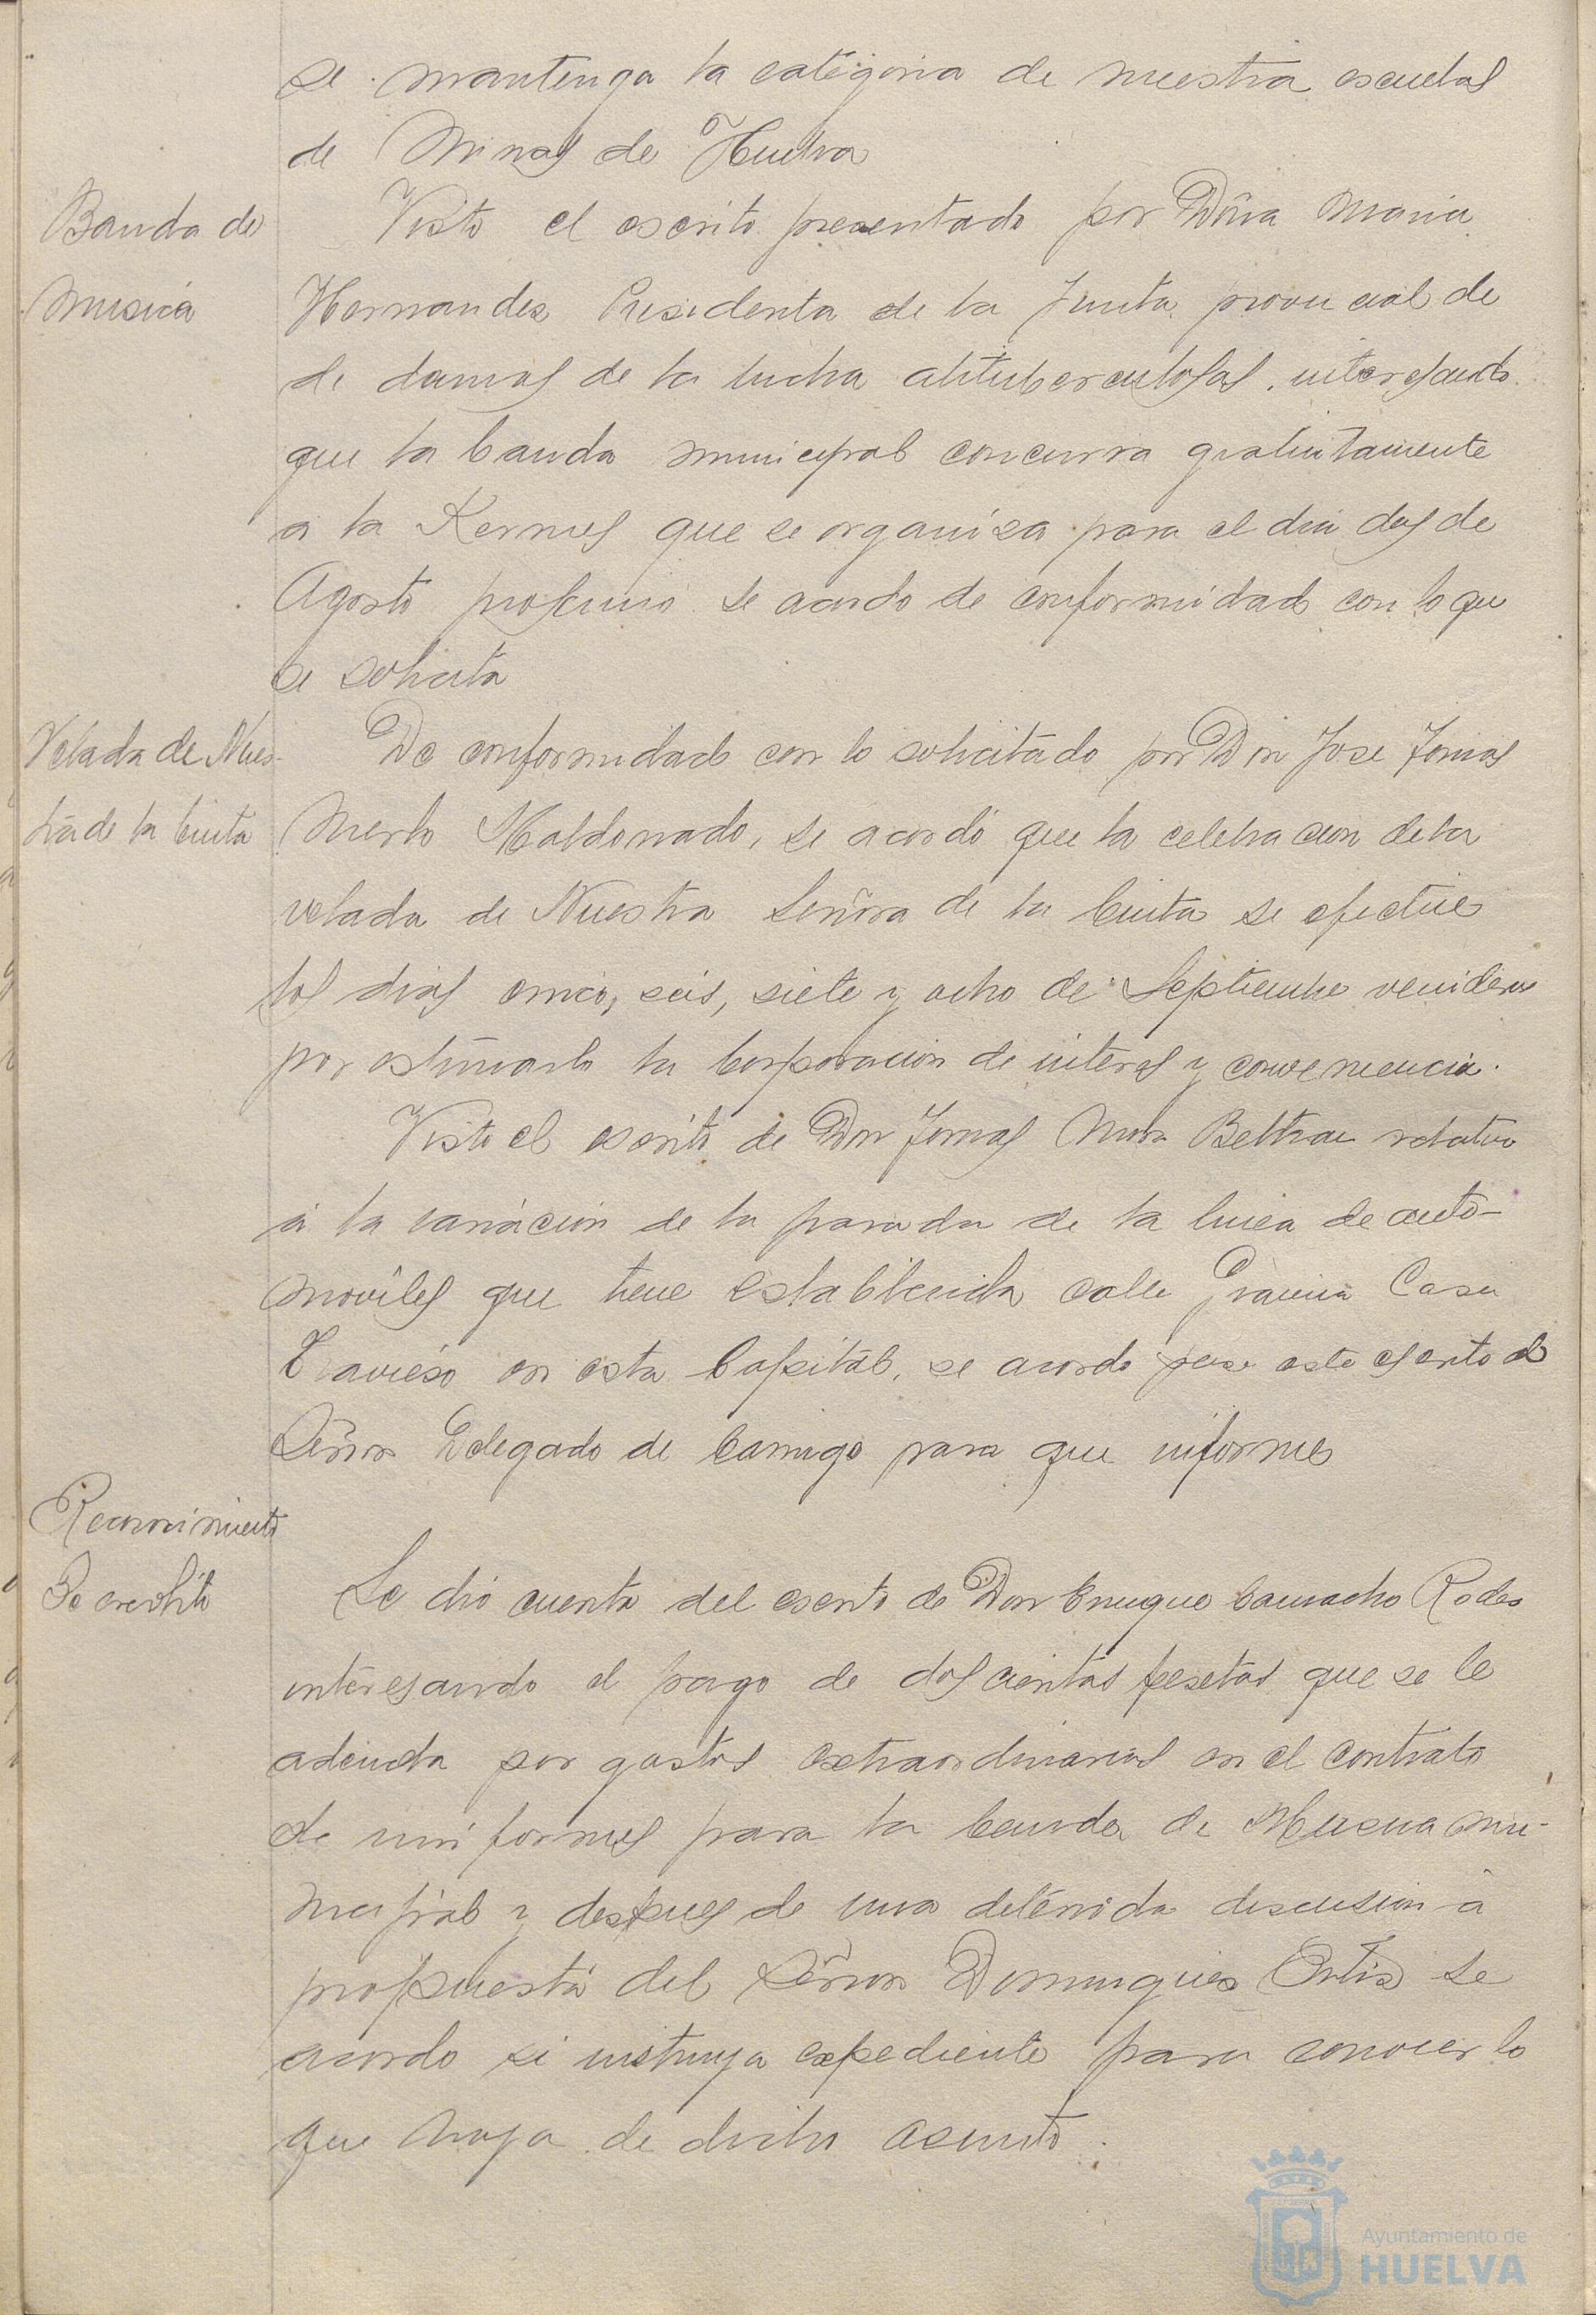 se mantenga la categoria de nuestra escuelas
de Minas de Huelva
Banda de
Musica
Visto el escrito presentado por Doña Maria
Hernandez Presidenta de la Junta provincial de
de damas de la lucha atituberculosas, interesando
que la banda municipal concurra gratuitamente
a la Kermes que se organiza para el dia dos de
Agosto proximo se acordo de conformidad con lo que
se solicita
Velada de Nues-
tra de la Cinta
De conformidad con lo solicitado por Don Jose Tomas
Merlo Maldonado, se acordó que la celebracion de la
velada de Nuestra Señora de la Cinta se efectue
los dias cinco, seis, siete y ocho de Septiembre venidero
por estimarlo la Corporacion de interes y conveniencia.
Visto el escrito de Don Tomas Mora Beltran relativo
á la variacion de la parada de la linea de auto-
moviles que tiene establecida calle Gravina Casa
Travieso en esta Capital, se acordo pase este escrito al
Señor Delegado de para que informe
Reconocimiento
De credito
Se dió cuenta del escrito de Don Enrique Camacho Rodes
interesando el pago de doscientas pesetas que se le
adeuda por gastos extraordinarios en el contrato
de uniformes para la banda de Musica mu-
nicipal y despues de una detenida discusion á
propuesta del Señor Dominguez Ortiz se
acordo se instruya expediente para conocer lo
que haya de dicho asunto.
Ayuntamiento de
HUELVA